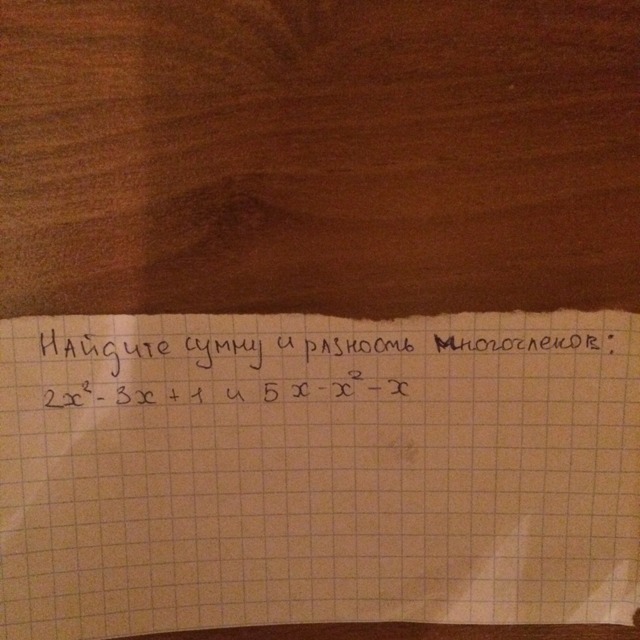 Найдите сумму и разность многочленов:
2x² - 3x + 1 и 5x - x² - x